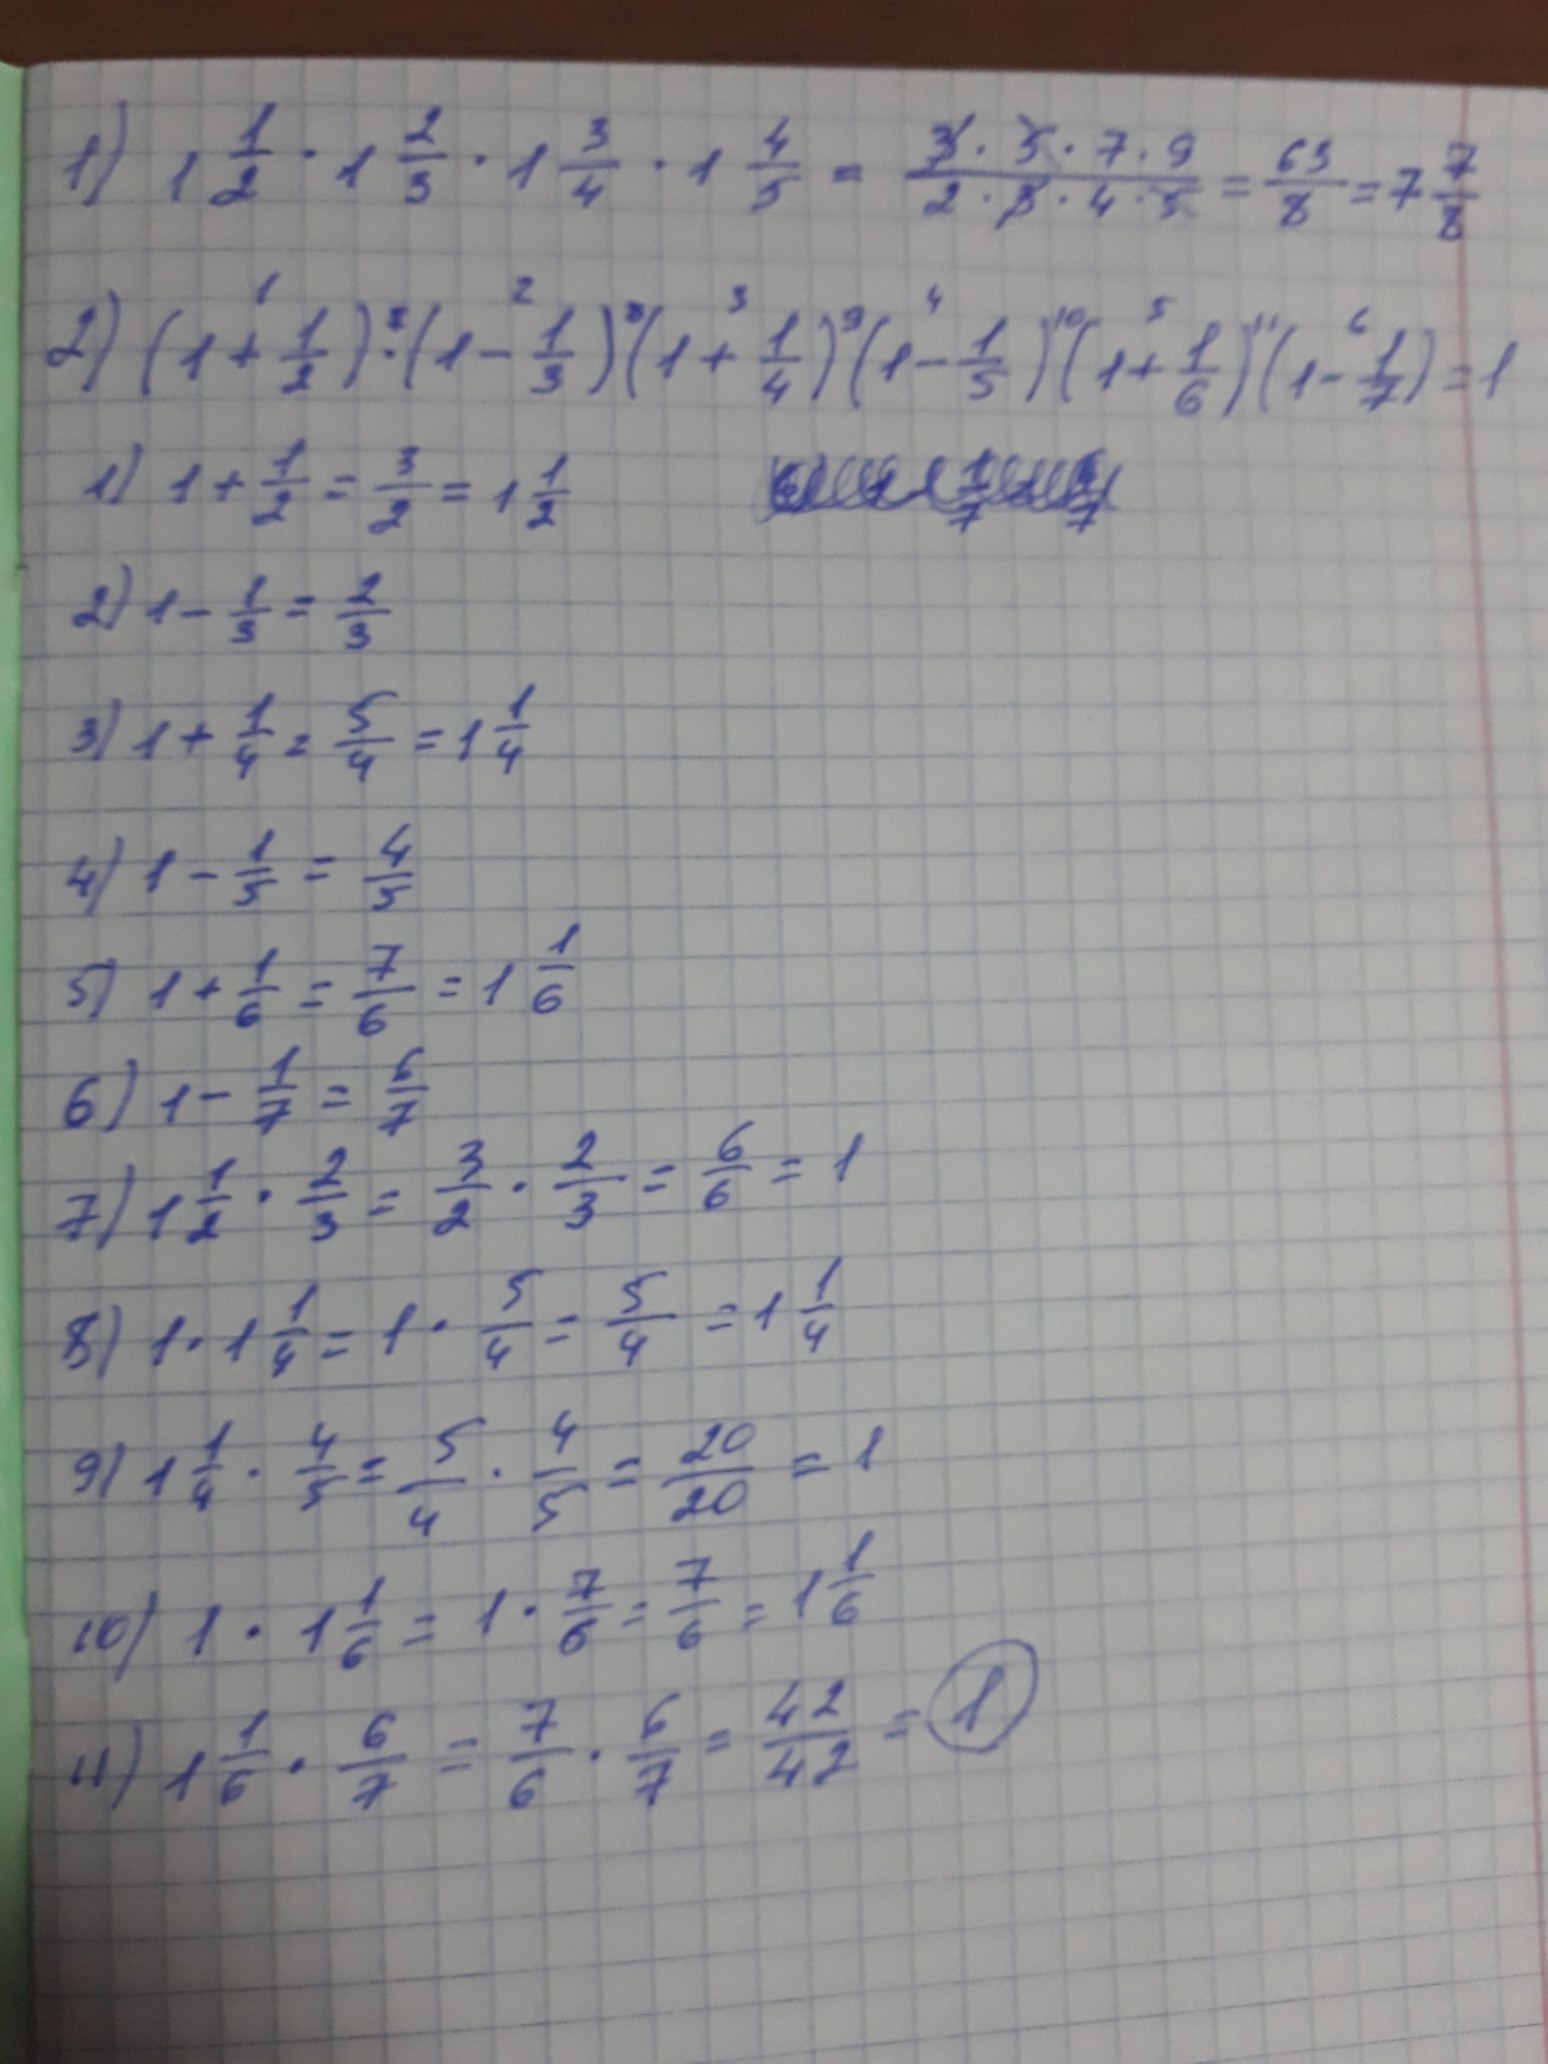 1) 1 1/2 · 1 2/3 · 1 3/4 · 1 4/5 = (3 · 5 · 7 · 9)/(2 · 3 · 4 · 5) = 63/8 = 7 7/8
1 2 8 3 9 4 10 5 11 6
2) (1 + 1/2) · (1 - 1/3) (1 + 1/4) (1 - 1/5) (1 + 1/6) (1 - 1/7) = 1
1) 1 + 1/2 = 3/2 = 1 1/2
2) 1 - 1/3 = 2/3
3) 1 + 1/4 = 5/4 = 1 1/4
4) 1 - 1/5 = 4/5
5) 1 + 1/6 = 7/6 = 1 1/6
6) 1 - 1/7 = 6/7
7) 1 1/2 · 2/3 = 3/2 · 2/3 = 6/6 = 1
8) 1 · 1 1/4 = 1 · 5/4 = 5/4 = 1 1/4
9) 1 1/4 · 4/5 = 5/4 · 4/5 = 20/20 = 1
10) 1 · 1 1/6 = 1 · 7/6 = 7/6 = 1 1/6
11) 1 1/6 · 6/7 = 7/6 · 6/7 = 42/42 = 1